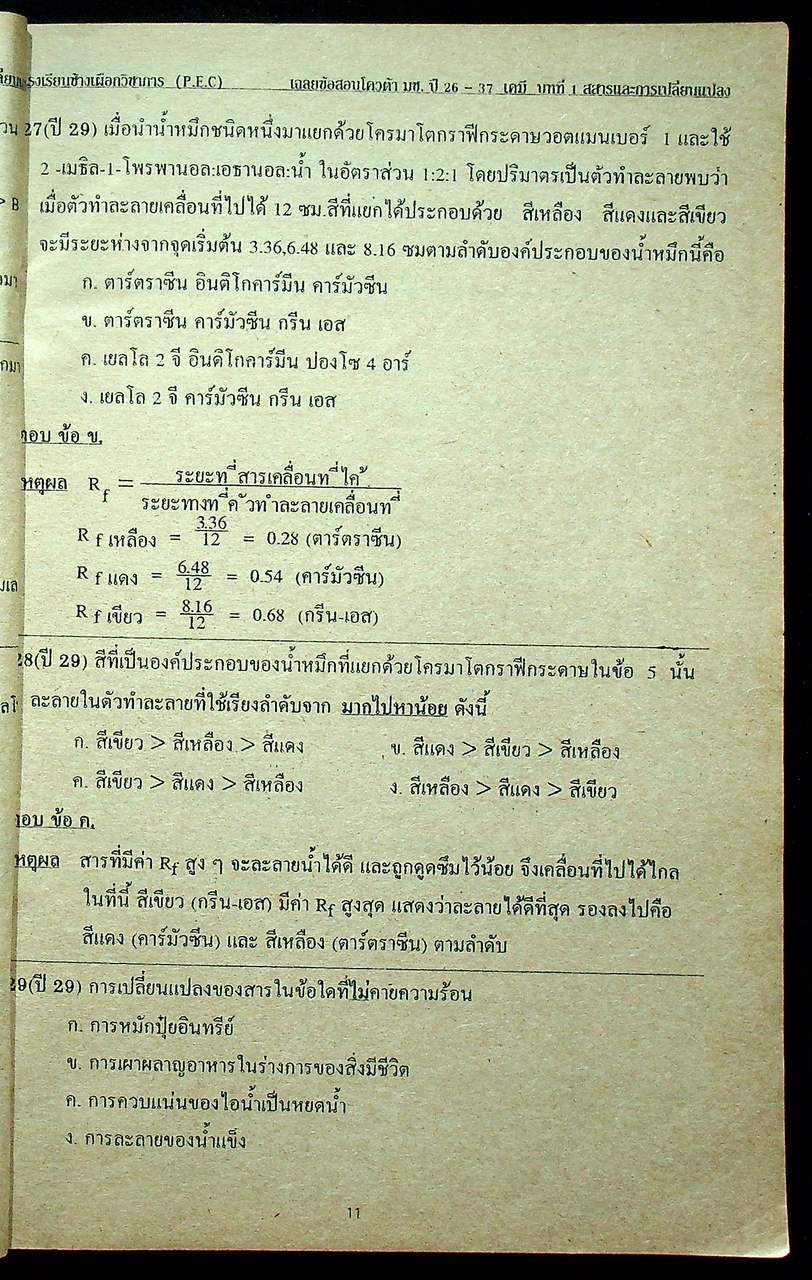 โรงเรียนช้างเผือกวิชาการ (P.E.C) เฉลยข้อสอบโควต้า มช. ปี 26 - 37 เคมี บทที่ 1 สสารและการเปลี่ยนแปลง
27(ปี 29) เมื่อนำน้ำหมึกชนิดหนึ่งมาแยกด้วยโครมาโตกราฟีกระดาษวอตแมนเบอร์ 1 และใช้
2 -เมธิล-1-โพรพานอล:เอธานอล:น้ำ ในอัตราส่วน 1:2:1 โดยปริมาตรเป็นตัวทำละลายพบว่า
เมื่อตัวทำละลายเคลื่อนที่ไปได้ 12 ซม.สีที่แยกได้ประกอบด้วย สีเหลือง สีแดงและสีเขียว
จะมีระยะห่างจากจุดเริ่มต้น 3.36,6.48 และ 8.16 ซมตามลำดับองค์ประกอบของน้ำหมึกนี้คือ
ก. ตาร์ตราซีน อินดิโกคาร์มีน คาร์มัวซีน
ข. ตาร์ตราซีน คาร์มัวซีน กรีน เอส
ค. เยลโล 2 จี อินดิโกคาร์มีน ปองโซ 4 อาร์
ง. เยลโล 2 จี คาร์มัวซีน กรีน เอส
ตอบ ข้อ ข.
เหตุผล Rf = ระยะที่สารเคลื่อนที่ได้
ระยะทางที่ตัวทำละลายเคลื่อนที่
Rf เหลือง = 3.36/12 = 0.28 (ตาร์ตราซีน)
Rf แดง = 6.48/12 = 0.54 (คาร์มัวซีน)
Rf เขียว = 8.16/12 = 0.68 (กรีน-เอส)
28(ปี 29) สีที่เป็นองค์ประกอบของน้ำหมึกที่แยกด้วยโครมาโตกราฟีกระดาษในข้อ 5 นั้น
ละลายในตัวทำละลายที่ใช้เรียงลำดับจาก มากไปหาน้อย ดังนี้
ก. สีเขียว > สีเหลือง > สีแดง ข. สีแดง > สีเขียว > สีเหลือง
ค. สีเขียว > สีแดง > สีเหลือง ง. สีเหลือง > สีแดง > สีเขียว
ตอบ ข้อ ค.
เหตุผล สารที่มีค่า Rf สูง ๆ จะละลายน้ำได้ดี และถูกดูดซึมไว้น้อย จึงเคลื่อนที่ไปได้ไกล
ในที่นี้ สีเขียว (กรีน-เอส) มีค่า Rf สูงสุด แสดงว่าละลายได้ดีที่สุด รองลงไปคือ
สีแดง (คาร์มัวซีน) และ สีเหลือง (ตาร์ตราซีน) ตามลำดับ
29(ปี 29) การเปลี่ยนแปลงของสารในข้อใดที่ไม่คายความร้อน
ก. การหมักปุ๋ยอินทรีย์
ข. การเผาผลาญอาหารในร่างการของสิ่งมีชีวิต
ค. การควบแน่นของไอน้ำเป็นหยดน้ำ
ง. การละลายของน้ำแข็ง
11